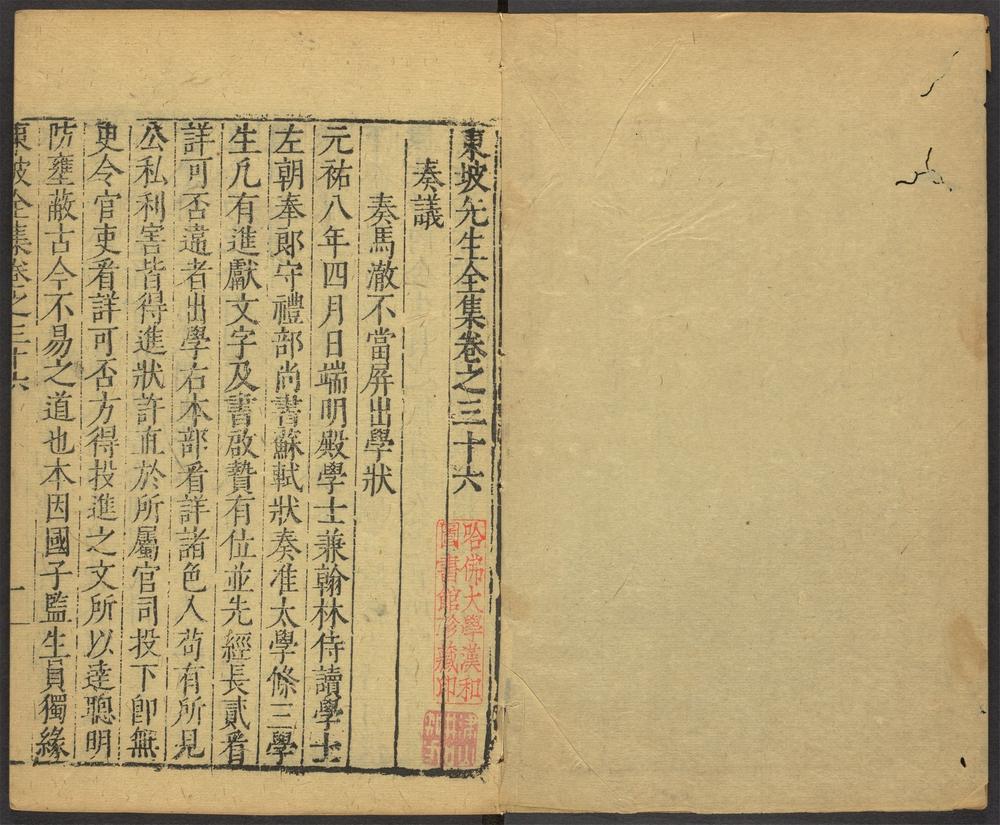 東坡先生全集卷之三十六
奏議
奏馬澈不當屏出學狀
元祐八年四月日端明殿學士兼翰林侍讀學士
左朝奉郎守禮部尚書蘇軾狀奏准太學條三學
生凡有進獻文字及書啟贄有位並先經長貳看
詳可否違者出學右本部看詳諸色人苟有所見
公私利害皆得進狀許直於所屬官司投下卽無
更令官吏看詳可否方得投進之文所以達聰明
防壅蔽古今不易之道也本因國子監生員獨緣
東坡全集卷之三十六
一
哈佛大學漢和
圖書館珍藏印